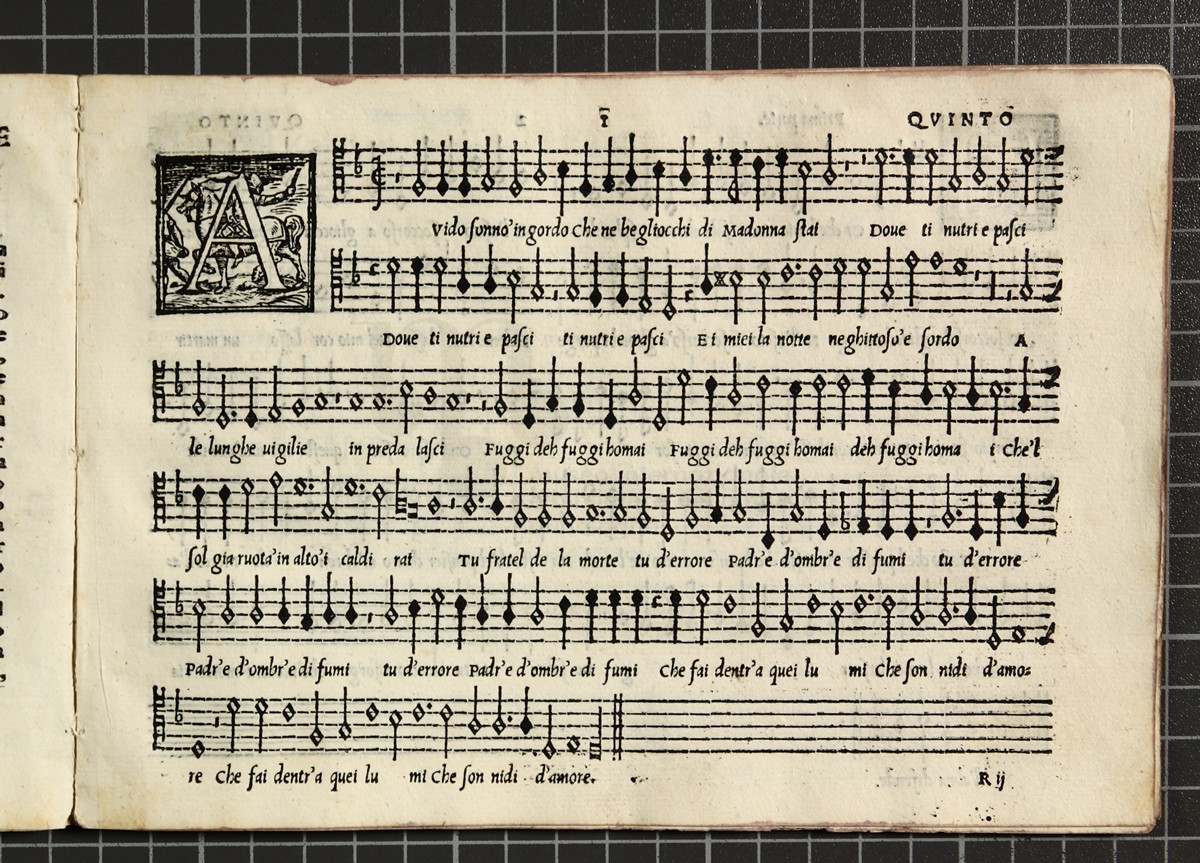 1 QVINTO
A
Vido sonno'ingordo Che ne begliocchi di Madonna stai Doue ti nutri e pasci
Doue ti nutri e pasci ti nutri e pasci E i miei la notte neghittoso'e sordo A
le lunghe uigilie in preda lasci Fuggi deh fuggi homai Fuggi deh fuggi homai deh fuggi homa i Che'l
sol gia ruota'in alto'i caldi rai Tu fratel de la morte tu d'errore Padr'e d'ombr'e di fumi tu d'errore
Padr'e d'ombr'e di fumi tu d'errore Padr'e d'ombr'e di fumi Che fai dentr'a quei lu mi Che son nidi d'amo=
re Che fai dentr'a quei lu mi Che son nidi d'amore.
R ij